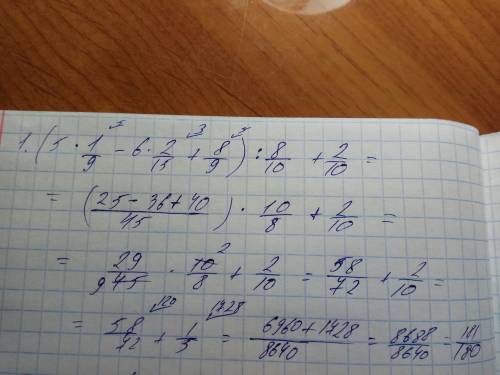 1. (5 · 1/9 - 6 · 2/15 + 8/9) : 8/10 + 2/10 =
= (25 - 36 + 40)/45 · 10/8 + 2/10 =
= 29/45 9 · 10/8 2 + 2/10 = 58/72 + 2/10 =
= 58/72 + 1/5 = (6960 + 1728)/8640 = 8688/8640 = 181/180